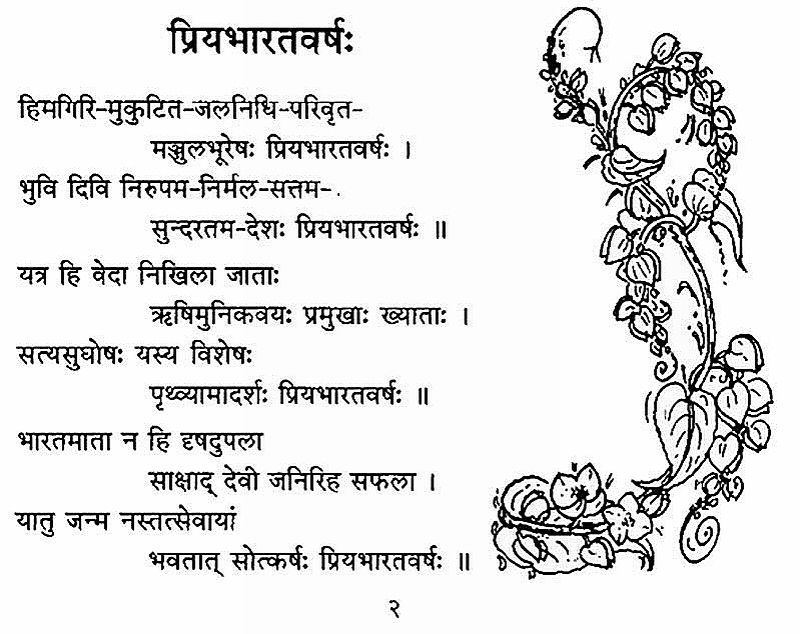 प्रियभारतवर्षः
हिमगिरि-मुकुटित-जलनिधि-परिवृत-
मञ्जुलभूरेषः प्रियभारतवर्षः ।
भुवि दिवि निरुपम-निर्मल-सत्तम-
सुन्दरतम-देशः प्रियभारतवर्षः ॥
यत्र हि वेदा निखिला जाताः
ऋषिमुनिकवयः प्रमुखाः ख्याताः ।
सत्यसुघोषः यस्य विशेषः
पृथ्व्यामादर्शः प्रियभारतवर्षः ॥
भारतमाता न हि दृषदुपला
साक्षाद् देवी जनिरिह सफला ।
यातु जन्म नस्तत्सेवायां
भवतात् सोत्कर्षः प्रियभारतवर्षः ॥
२